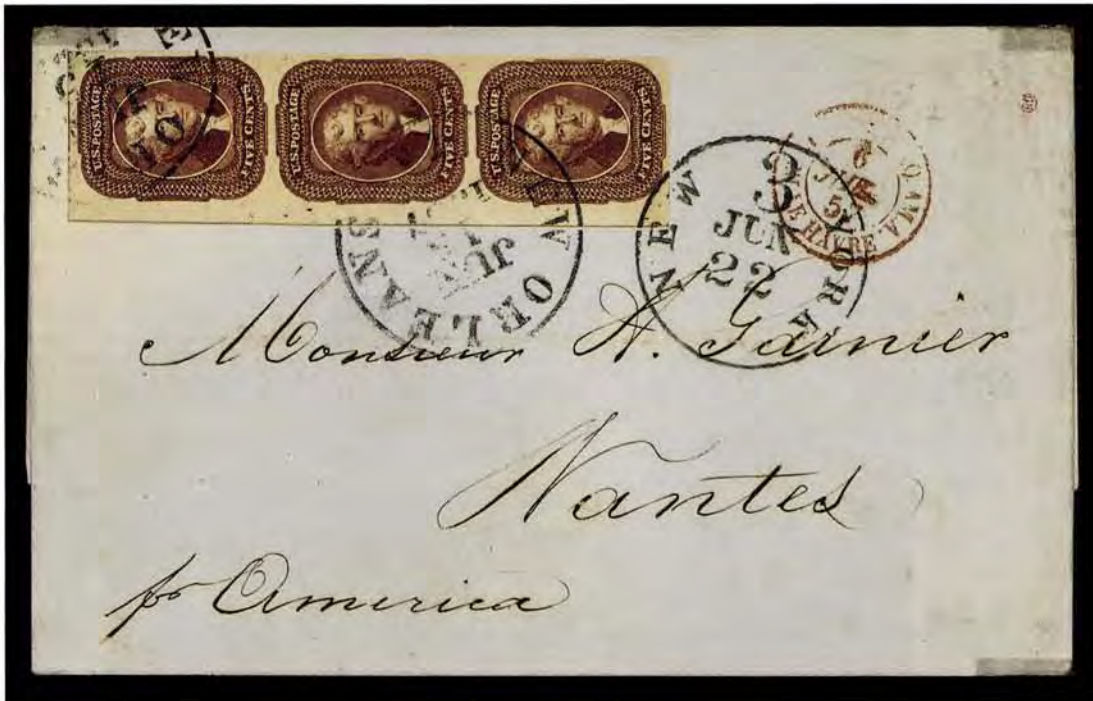 U.S. POSTAGE FIVE CENTS
U.S. POSTAGE FIVE CENTS
U.S. POSTAGE FIVE CENTS
ORLEANS
JUN
NEW YORK
3
JUN
22
6
LE HAVRE
Monsieur A. Garnier
Nantes
pr America